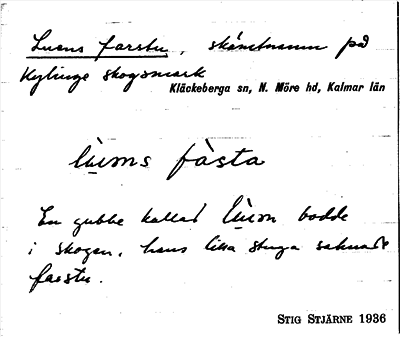 Lusns farstu, skämtnamn på
Kylinge skogsmark
Kläckeberga sn, N. Möre hd, Kalmar län
lùsns fàsta
En gubbe kallad lùsn bodde
i skogen, hans lilla stuga saknade
farstu.
STIG STJÄRNE 1936